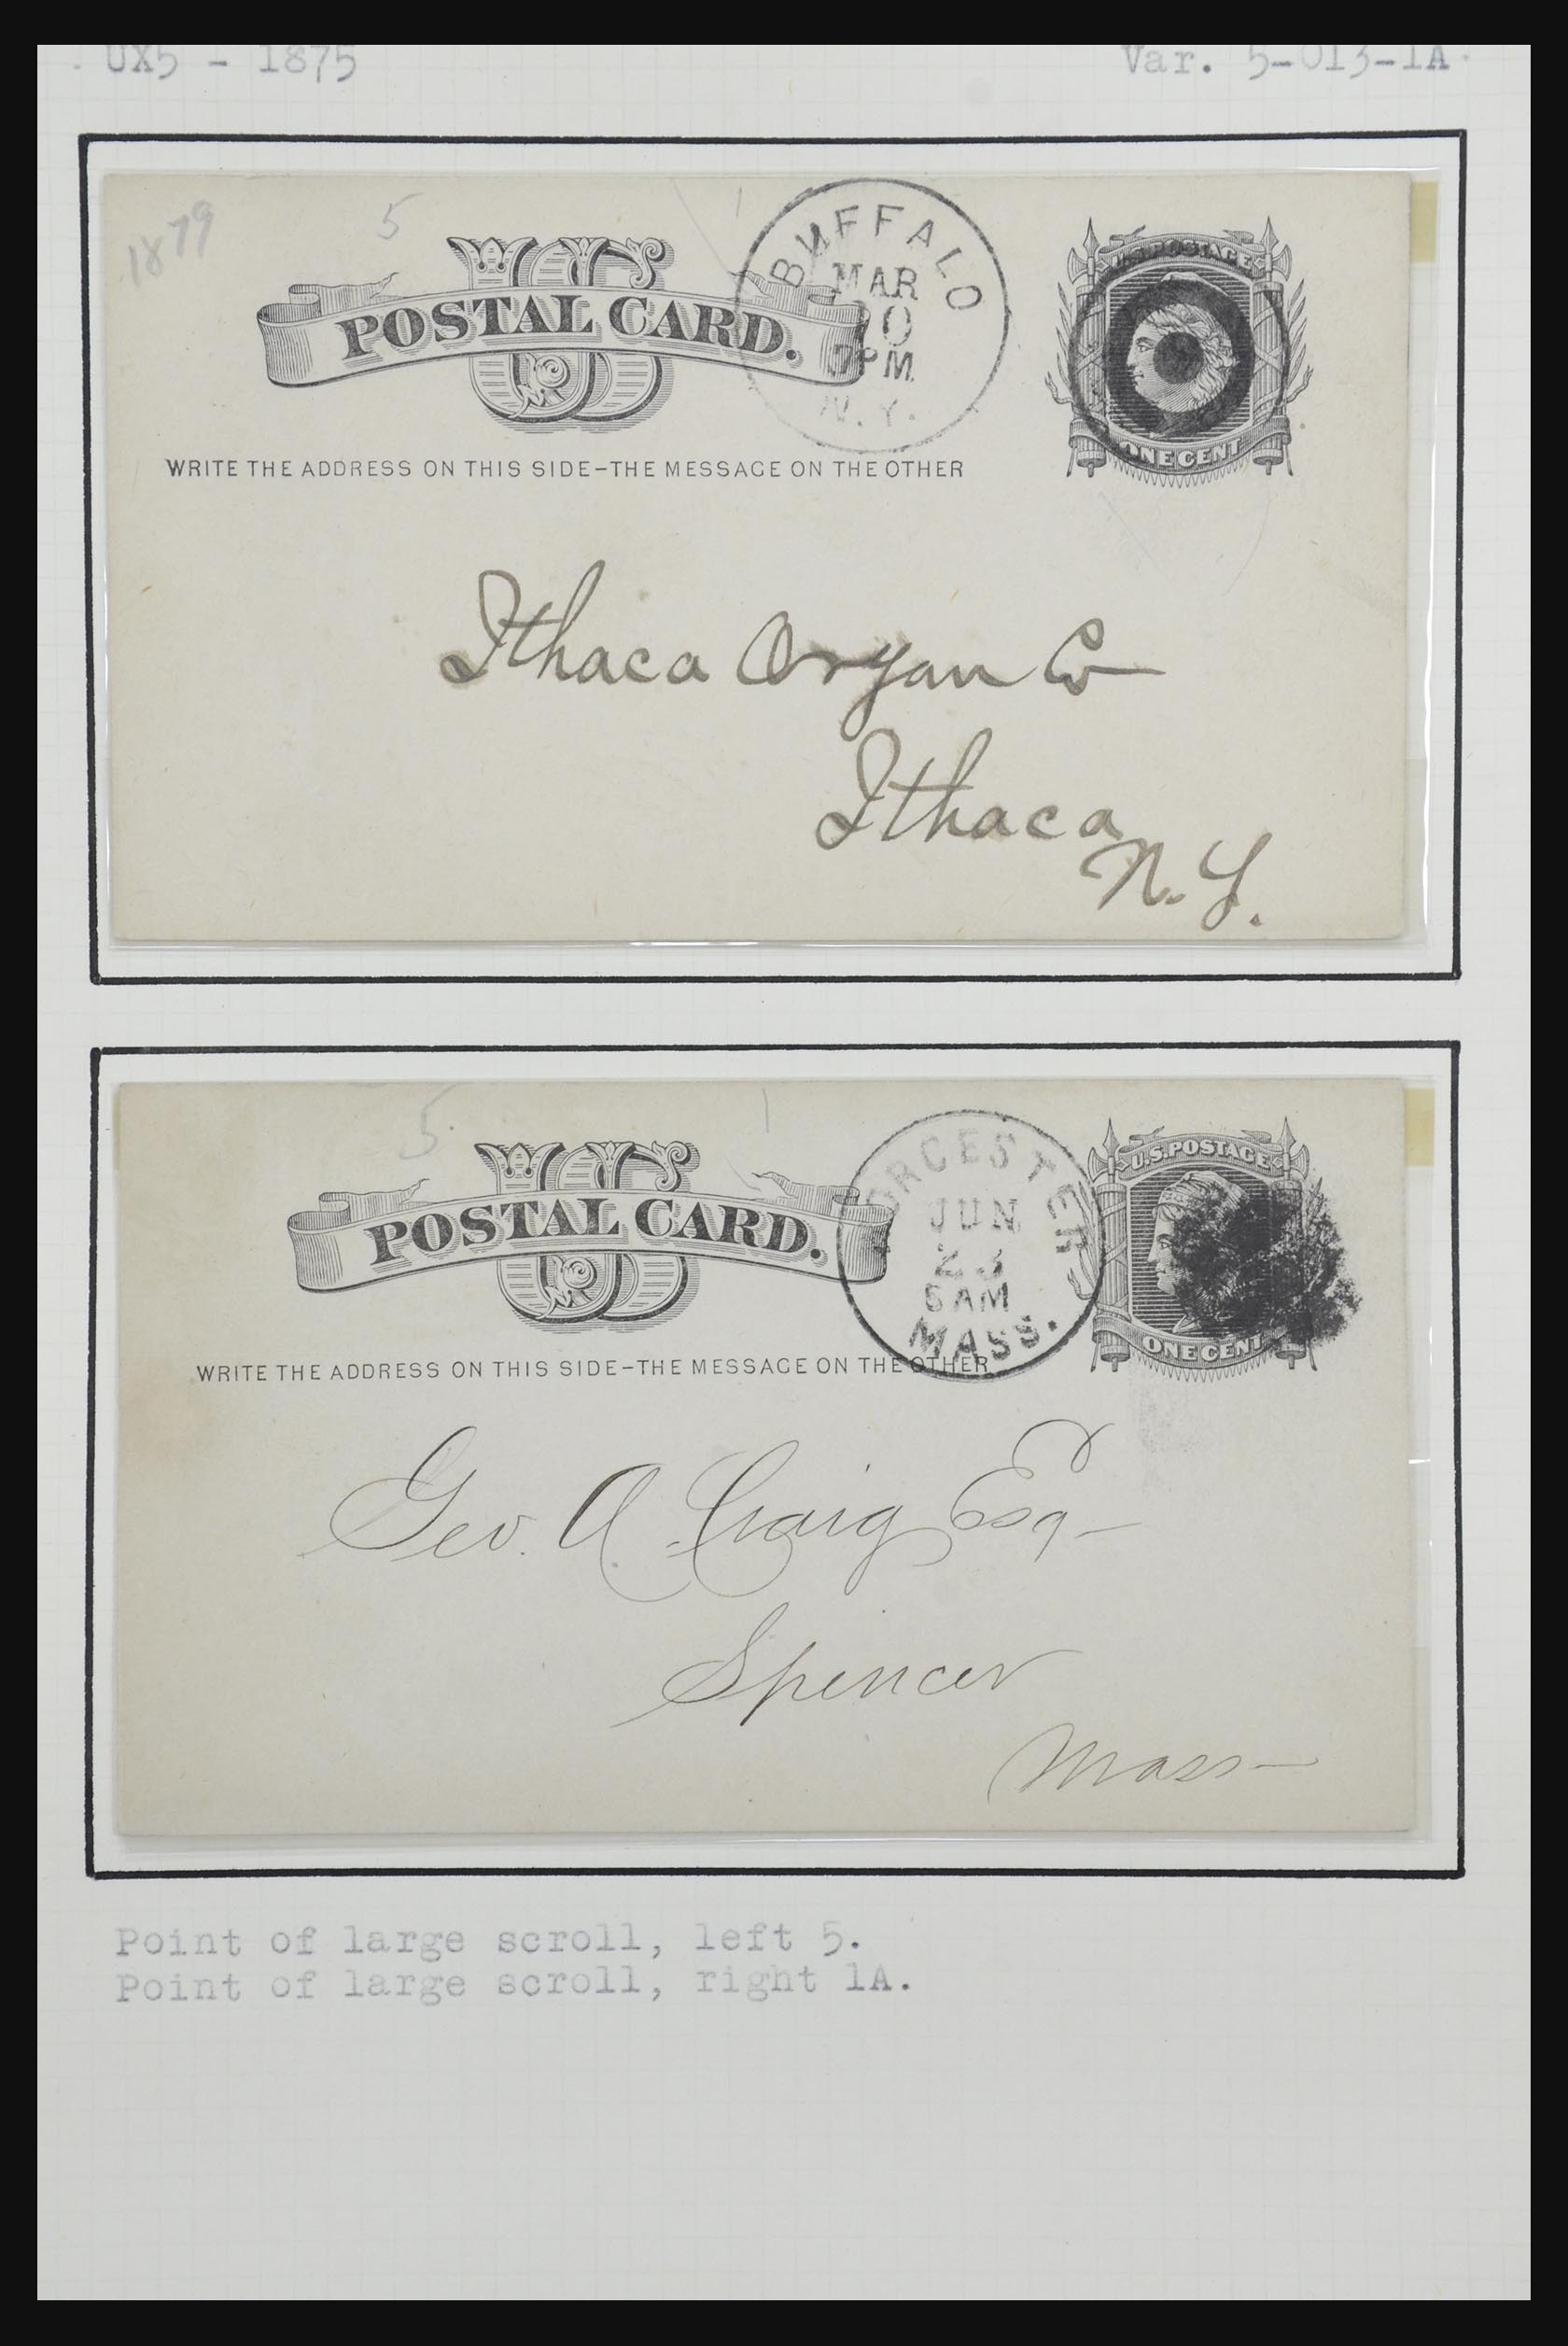 UX5 - 1875
Var. 5-013-1A
1879
5
US
POSTAL CARD.
WRITE THE ADDRESS ON THIS SIDE-THE MESSAGE ON THE OTHER
BUFFALO
MAR
7PM
N.Y.
U.S. POSTAGE
ONE CENT
Ithaca Organ Co
Ithaca
N.Y.
5
US
POSTAL CARD.
WRITE THE ADDRESS ON THIS SIDE-THE MESSAGE ON THE OTHER
WORCESTER
JUN
23
6AM
MASS.
U.S. POSTAGE
ONE CENT
Geo. A. Craig Esq-
Spencer
Mass-
Point of large scroll, left 5.
Point of large scroll, right 1A.